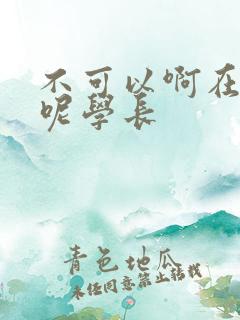 不可以啊在
呢學長
青色地瓜
未经同意禁止转载